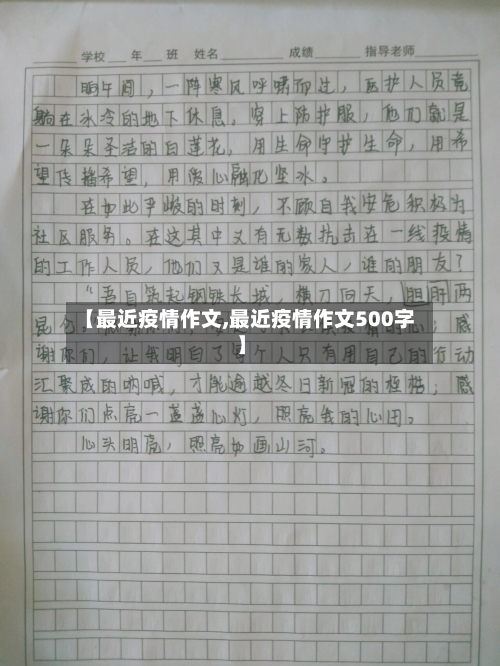 学校 年 班 姓名 成绩 指导老师
晌午间，一阵寒风呼啸而过，医护人员竟
躺在冰冷的地下休息。穿上防护服，他们就是
一朵朵圣洁的白莲花，用生命守护生命，用希
望传播希望，用爱心融化坚冰。
在如此严峻的时刻，不顾自我安危积极为
社区服务。在这其中又有无数抗击在一线疫情
的工作人员，他们又是谁的家人，谁的朋友？
“吾自筑起钢铁长城，横刀向天，胆肝两
昆仑
【最近疫情作文,最近疫情作文500字
】
感
谢你们，让我明白了每个人只有用自己的行动
汇聚成的呐喊，才能逾越冬日新冠的桎梏；感
谢你们点亮一盏盏心灯，照亮我的心田。
心头明亮，照亮如画山河。